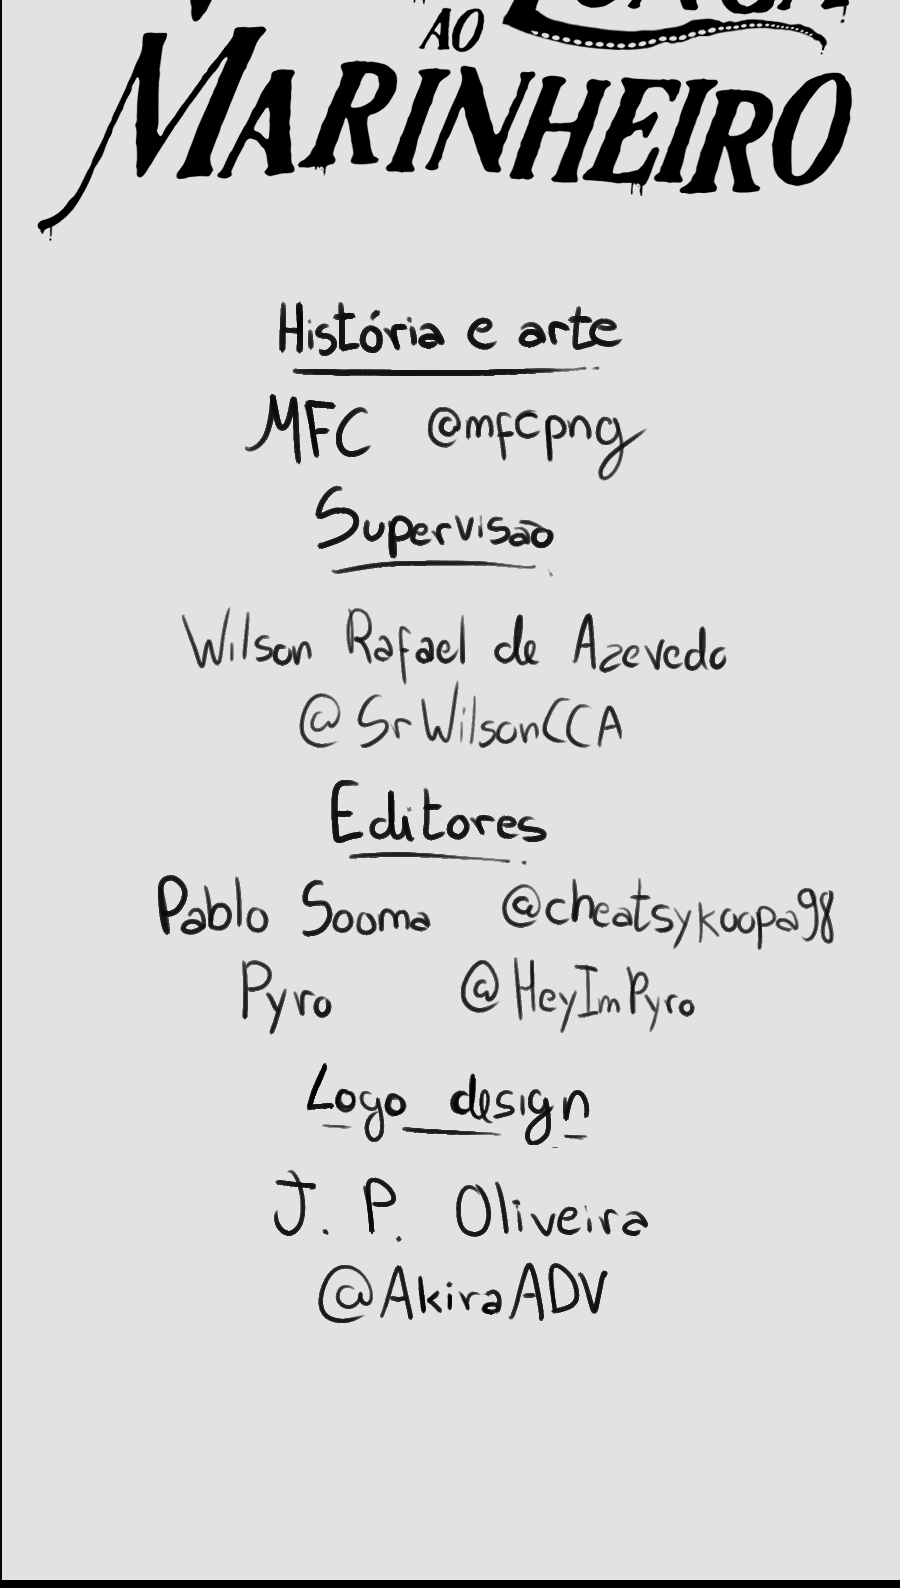 AO
MARINHEIRO
História e arte
MFC @mfcpng
Supervisão
Wilson Rafael de Azevedo
@SrWilsonCCA
Editores
Pablo Sooma @cheatsykoopa98
Pyro @HeyImPyro
Logo design
J. P. Oliveira
@AkiraADV